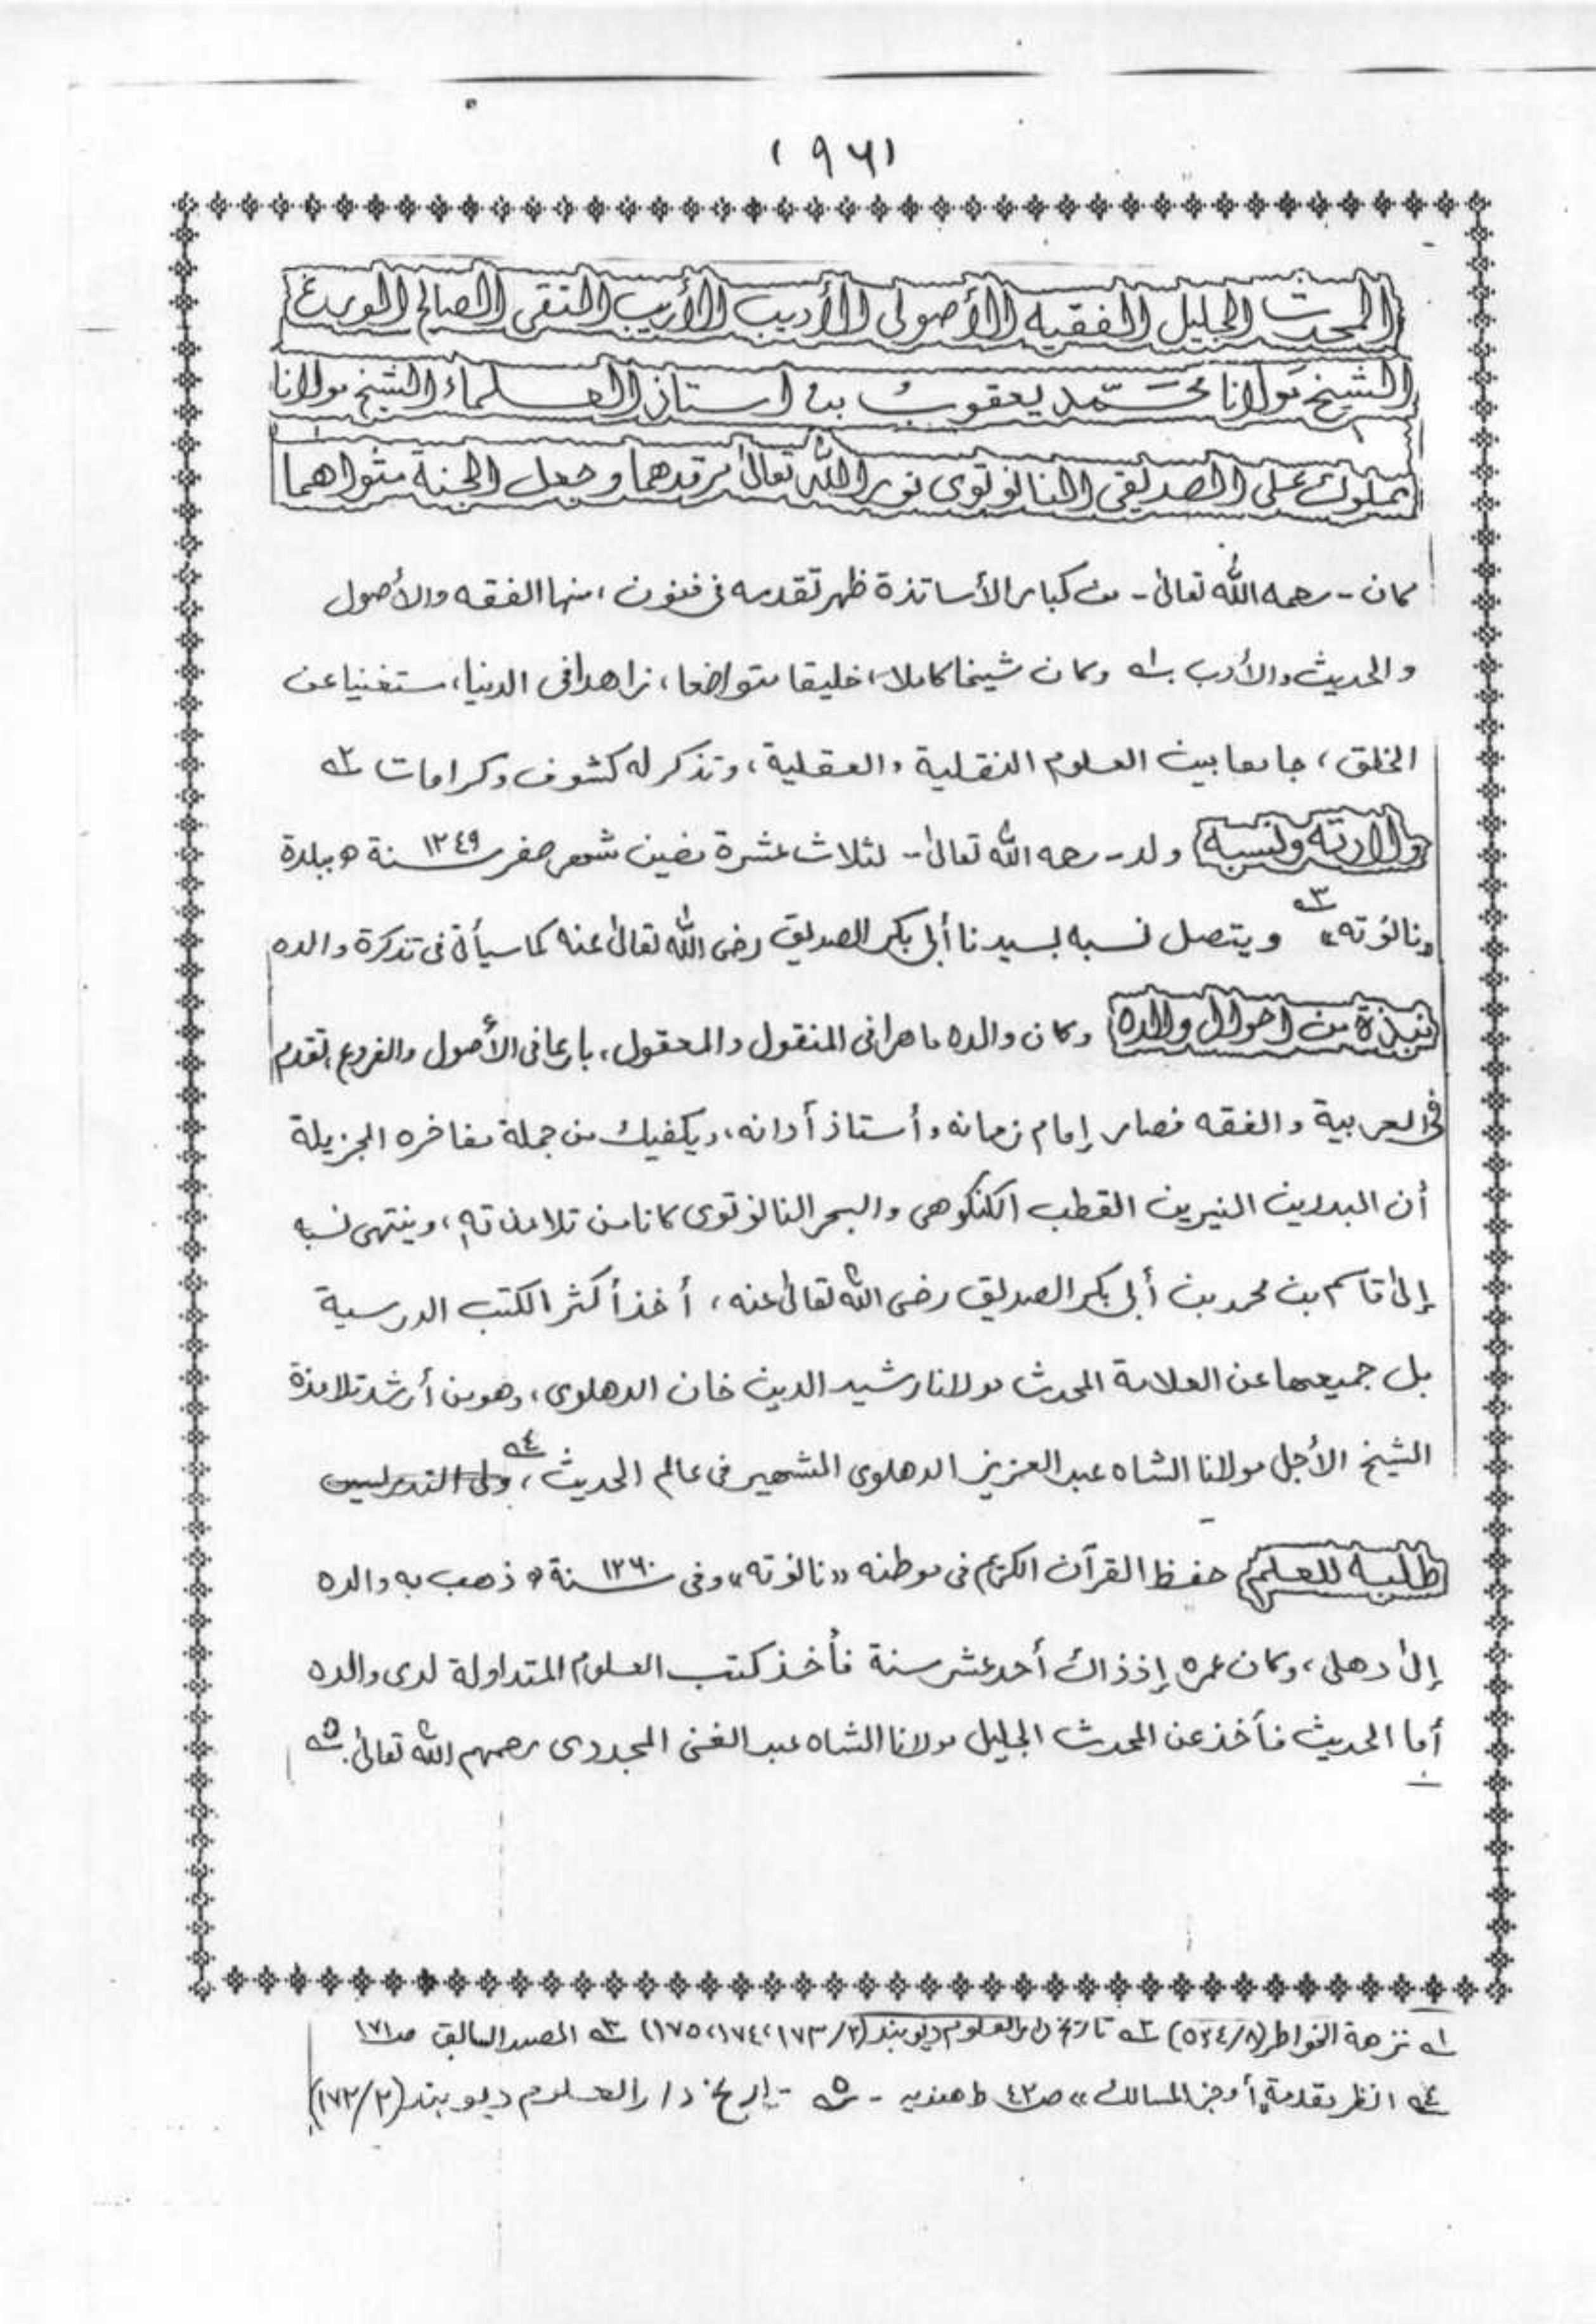 (٩٦١)
المحدث الجليل الفقيه الأصولى الأديب الأريب التقى الصالح الورع
الشيخ مولانا محمّد يعقوب بن استاذ العلماء الشيخ مولانا
مملوك على الصديقى النانوتوى نور الله تعالىٰ مرقدهما وجعل الجنة مثواهما
كان - رحمه الله تعالىٰ - من كبار الأساتذة ظهر تقدمه فى فنون، منها الفقه والأصول
والحديث والأدب ؎١ وكان شيخا كاملا، خليقا متواضعا، زاهدا فى الدنيا، مستغنيا عن
الخلق، جامعا بين العلوم النقلية والعقلية، وتذكر له كشوف وكرامات ؎٢
ولادته ونسبه ولد - رحمه الله تعالىٰ - لثلاث عشرة مضين شهر صفر سنة ١٢٤٩ ه ببلدة
«نانوته» ؎٣ ويتصل نسبه لسيدنا أبى بكر الصديق رضى الله تعالىٰ عنه كما سيأتى فى تذكرة والده
نبذة من احوال والده وكان والده ماهرا فى المنقول والمعقول، بارعا فى الأصول والفروع، تقدم
فى العربية والفقه فصار إمام زمانه وأستاذ أوانه، ويكفيك من جملة مفاخره الجزيلة
أن البدرين النيرين القطب الكنگوهى والبحر النانوتوى كانا من تلامذته، وينتهى نسبه
إلىٰ قاسم بن محمد بن أبى بكر الصديق رضى الله تعالىٰ عنه، أخذ أكثر الكتب الدرسية
بل جميعها عن العلامة المحدث مولانا رشيد الدين خان الدهلوى، وهو من أرشد تلامذة
الشيخ الأجل مولانا الشاه عبد العزيز الدهلوى الشهير فى عالم الحديث، ؎٤ ولى التدريس
طلبه للعلم حفظ القرآن الكريم فى موطنه «نانوته» وفى سنة ١٢٦٠ ه ذهب به والده
إلىٰ دهلى، وكان عمره إذ ذاك أحد عشر سنة فأخذ كتب العلوم المتداولة لدى والده
أما الحديث فأخذ عن المحدث الجليل مولانا الشاه عبد الغنى المجددى رحمهم الله تعالىٰ. ؎٥
؎١ نزهة الخواطر (٥٣٤/٨) ؎٢ تاريخ دار العلوم ديوبند (١٧٥،١٧٤،١٧٣/٢) ؎٣ المصدر السابق صـ١٧١
؎٤ انظر مقدمة «أوجز المسالك» صـ٤٢ ط هنديه - ؎٥ - تاريخ دار العلوم ديوبند (١٧٢/٢)